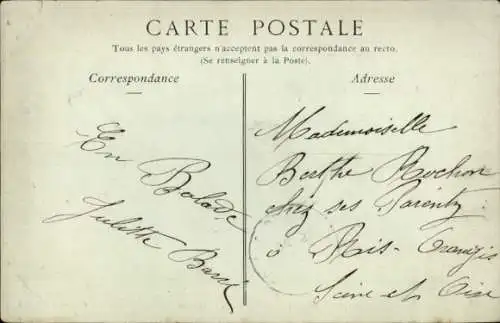 CARTE POSTALE
Tous les pays étrangers n'acceptent pas la correspondance au recto.
(Se renseigner à la Poste).
Correspondance
En Balade
Juliette
Adresse
Mademoiselle
Berthe Rochon
chez ses Parents
à Ris-Orangis
Seine et Oise